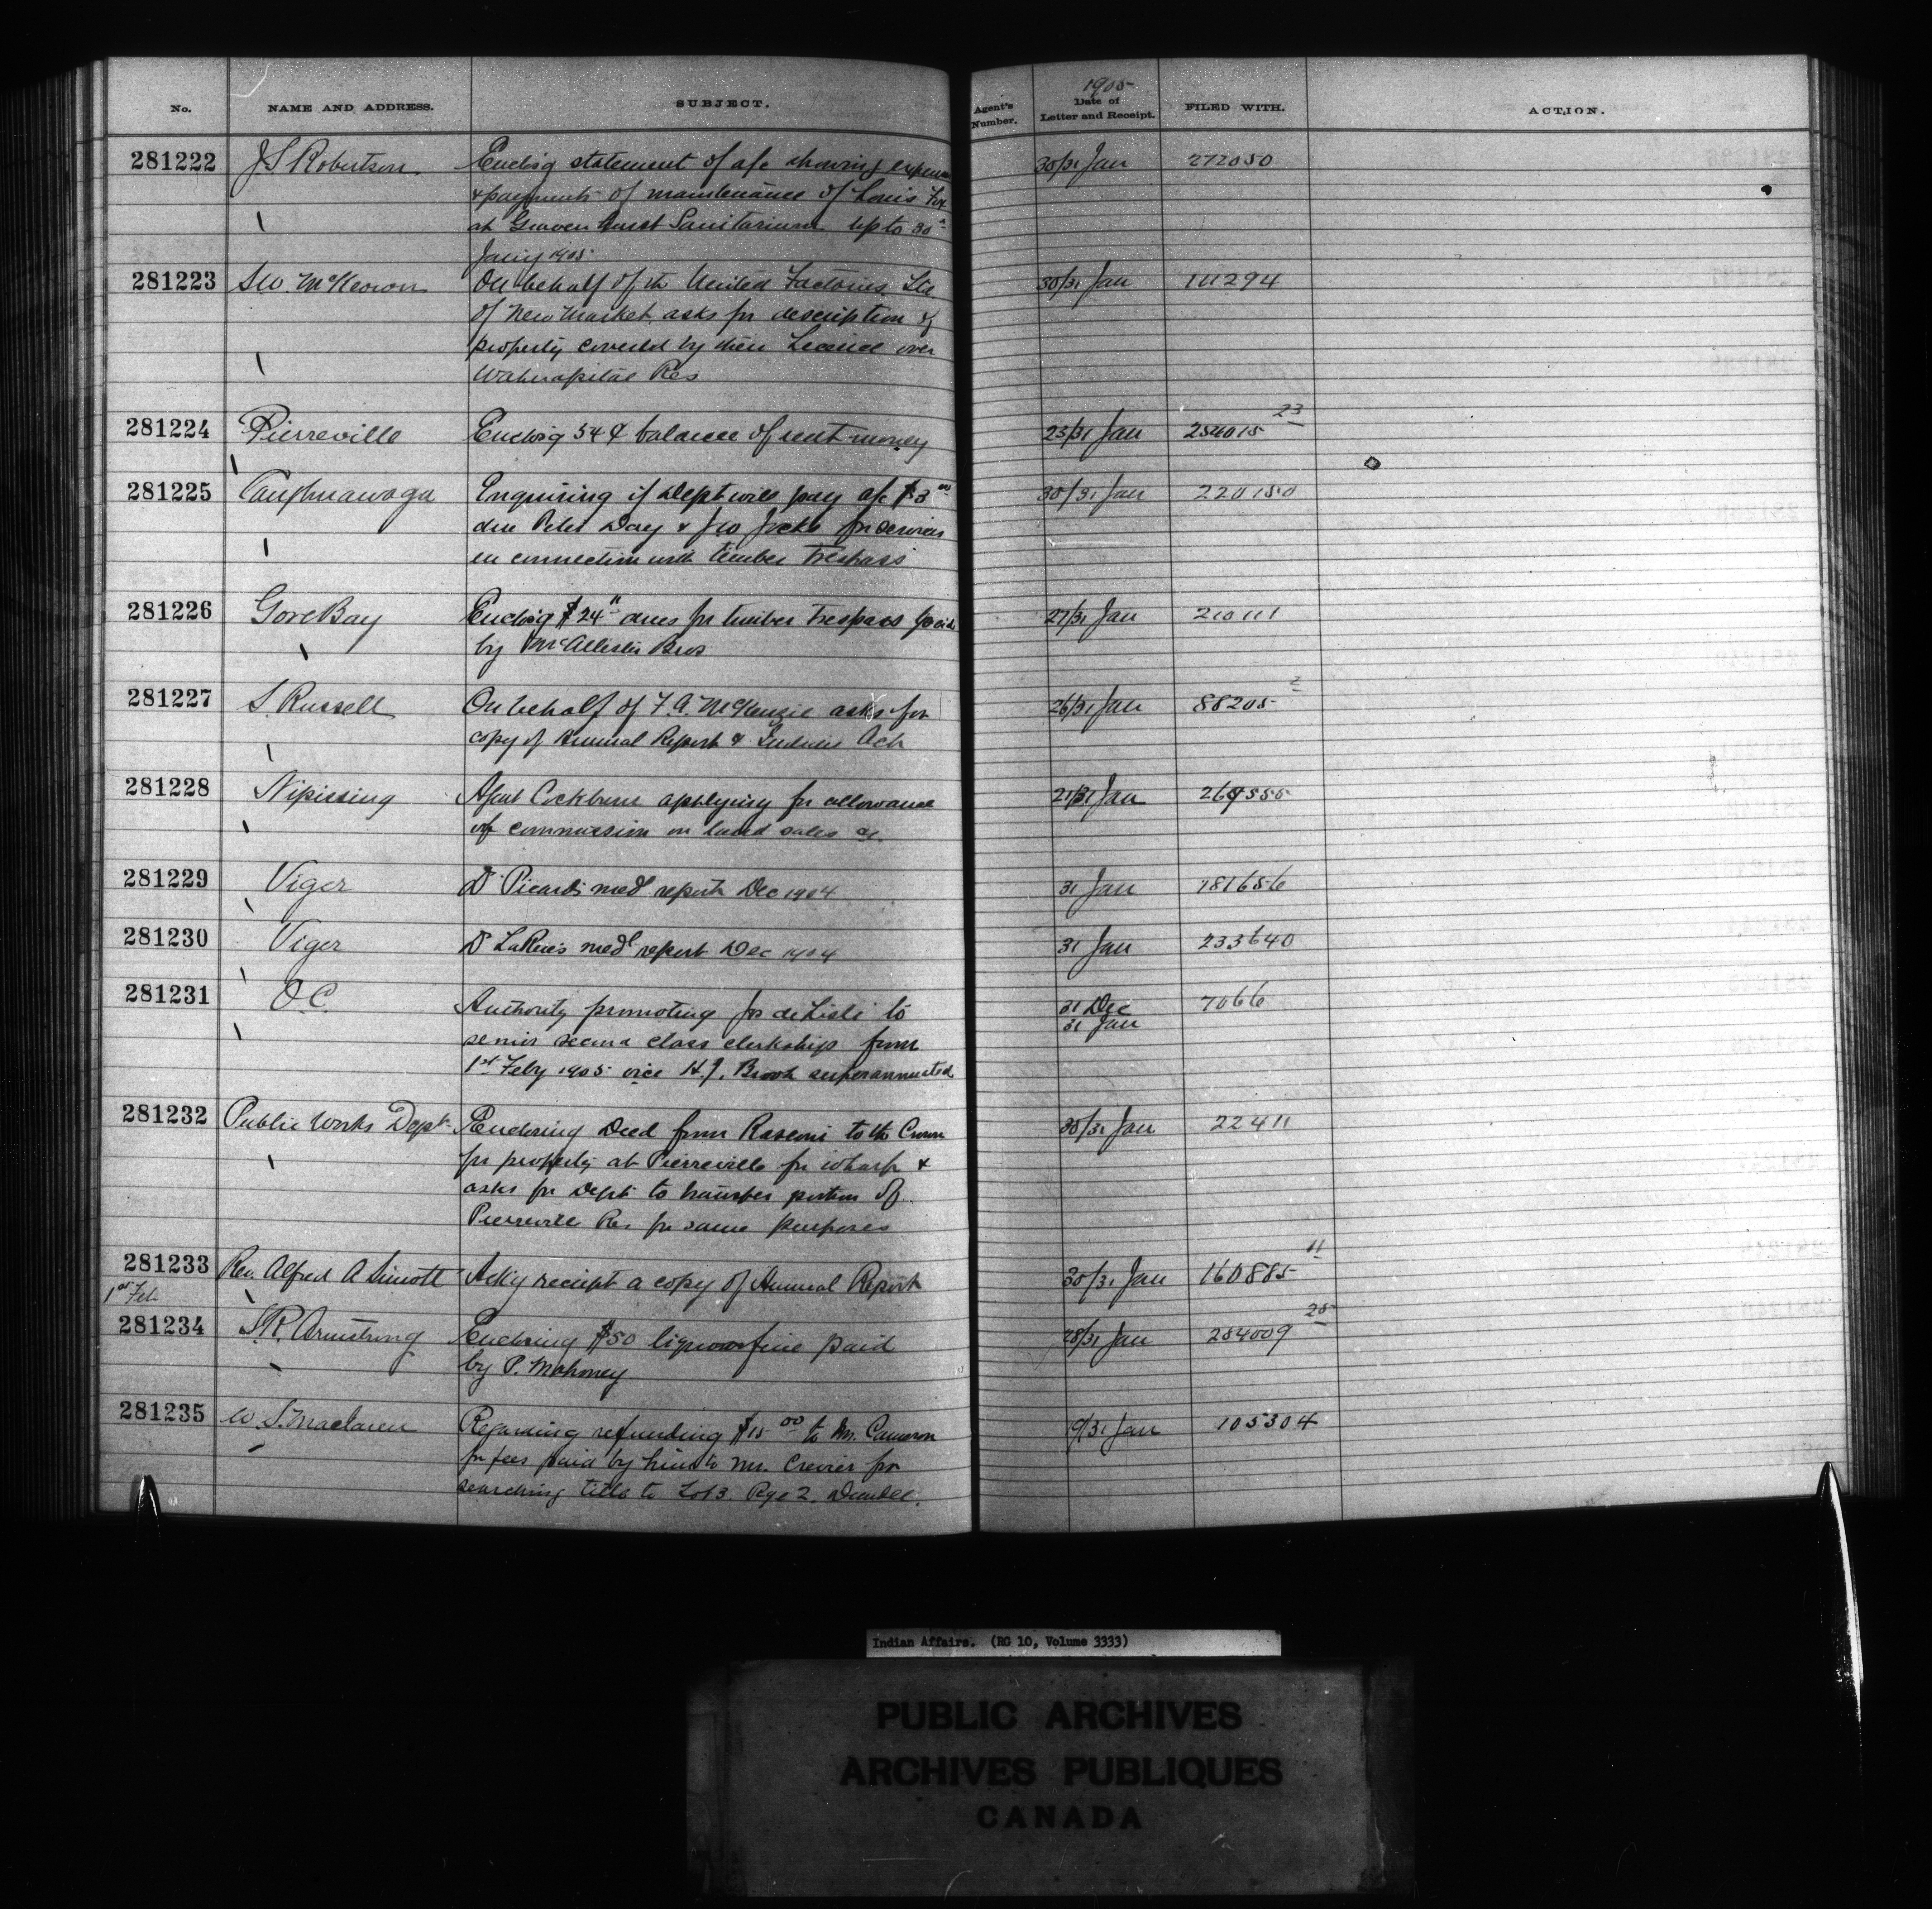 No. NAME AND ADDRESS. SUBJECT. Agent's Number. 1905 Date of Letter and Receipt. FILED WITH. ACTION.
281222 J S Robertson Enclos'g statement of a/c showing expense 30/31 Jan 272050
& payments of maintenance of Louis Fox
at Gravenhurst Sanitarium up to 30th
Jan'y 1905
281223 McKeown On behalf of the United Factories Ltd 30/31 Jan 111294
of New Market asks for description of
property covered by their License over
Wahnapitae Res
281224 Pierreville Enclos'g 54 ¢ balance of rent money 23/31 Jan 254015 23
281225 Caughnawaga Enquiring if Dept will pay a/c $3 00 30/31 Jan 220150
due Peter Day & Jno Jocks for services
in connection with timber trespass
281226 Gore Bay Enclos'g $24 11 dues for timber trespass paid 27/31 Jan 210111
by McAllister Bros
281227 S. Russell On behalf of F. A. McKenzie asks for 26/31 Jan 88205 2
copy of Annual Report & Indian Act
281228 Nipissing Agent Cockburn applying for allowance 21/31 Jan
of commission on land sales &c.
281229 Viger Dr Picard's med'l report Dec 1904 31 Jan 181656
281230 Viger Dr LaRue's med'l report Dec 1904 31 Jan 233640
281231 O.C. Authority promoting de Lisle to 31 Dec 7066
31 Jan
senior second class clerkship from
1st Feby 1905 vice H.J. Brook superannuated
281232 Public Works Dept Enclosing Deed from Rasconi to the Crown 30/31 Jan 22411
for property at Pierreville for wharf &
asks for Dept to transfer portion of
Pierreville Res for same purposes
281233 Rev. Alfred A Sinott Ack'g receipt a copy of Annual Report 30/31 Jan 160885 11
1st Feb
281234 S.R. Armstrong Enclosing $50 liquor fine paid 28/31 Jan 284009 25
by P. Mahoney
281235 W. S. Maclaren Regarding refunding $15 00 to Mr. Cameron 19/31 Jan 105304
for fees paid by him to Mr. Crevier for
searching title to Lot 3. Rge 2. Dundee.
Indian Affairs. (RG 10, Volume 3333)
PUBLIC ARCHIVES
ARCHIVES PUBLIQUES
CANADA